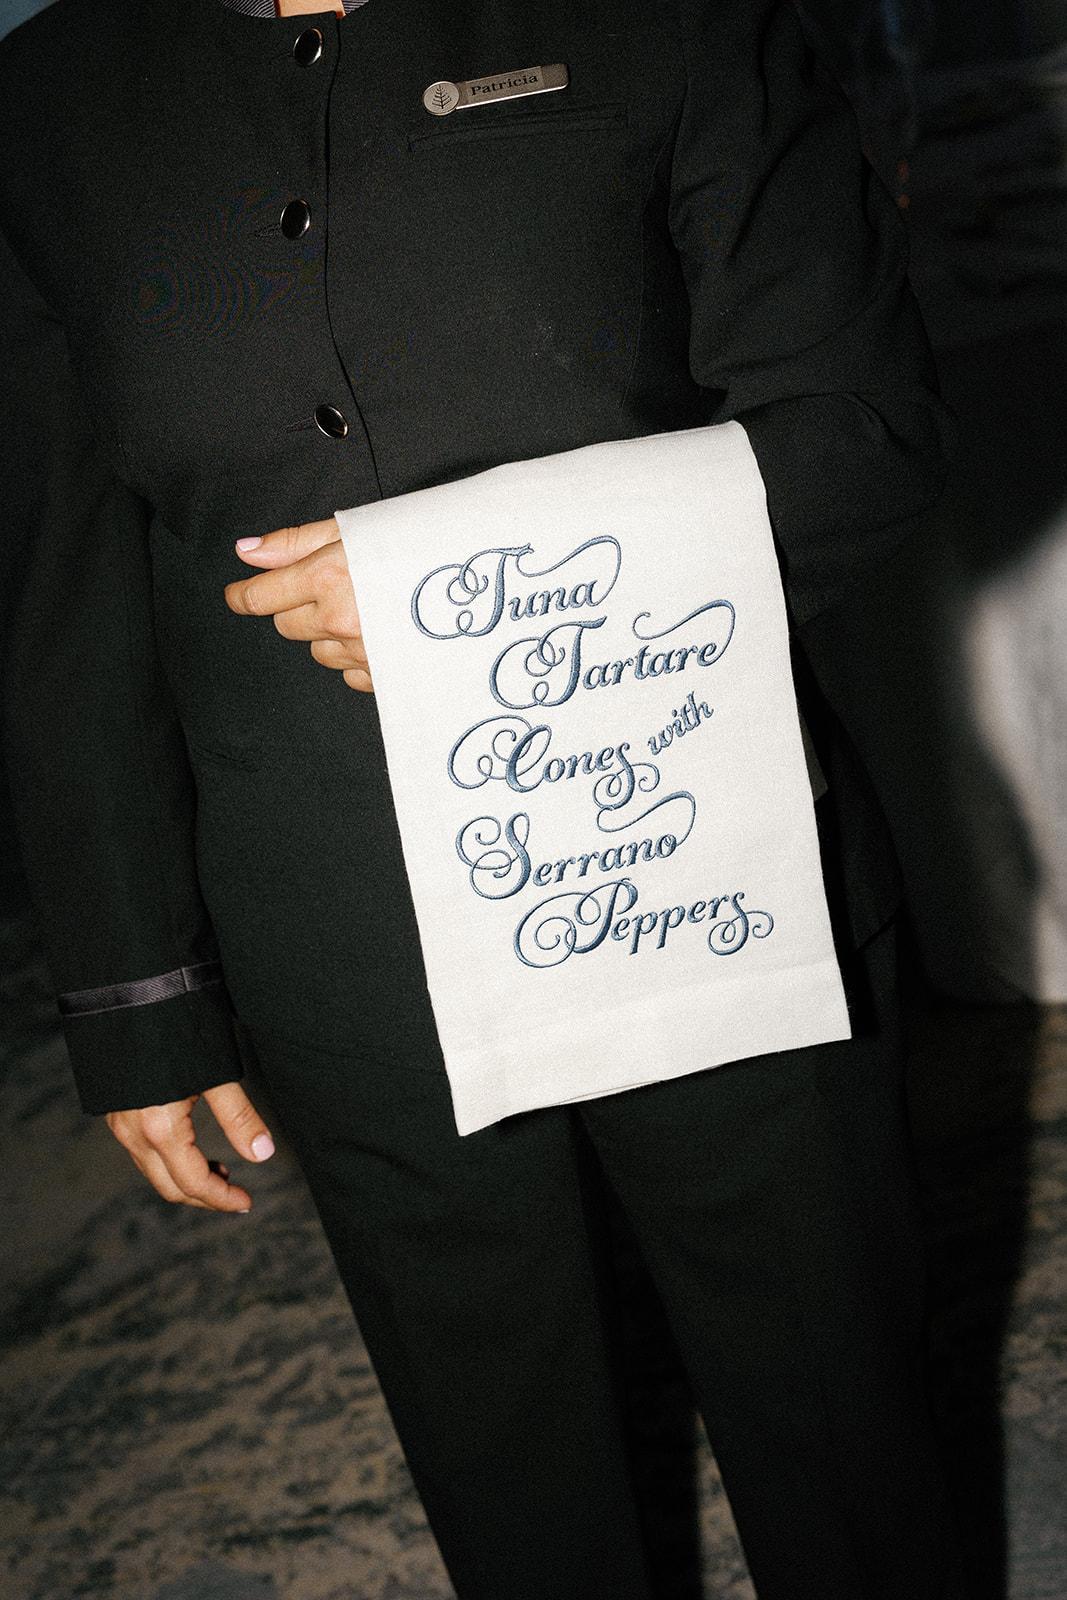 Patricia
Tuna
Tartare
Cones with
Serrano
Peppers